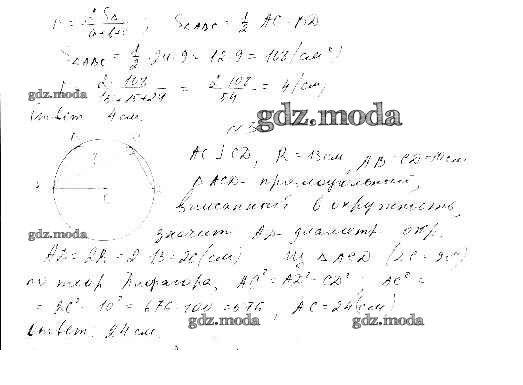 r = 2S△ / a+b+c ; S△ABC = 1/2 AC · BD
S△ABC = 1/2 · 24 · 9 = 12 · 9 = 108 (см²)
r = 2 · 108 / 15+15+24 = 2 · 108 / 54 = 4 (см)
gdz.moda
Ответ: 4 см.
gdz.moda
AC ⊥ CD, R = 13 см, AB = CD = 10 см
△ ACD - прямоугольный,
вписанный в окружность,
gdz.moda
значит AD - диаметр окр.
AD = 2R = 2 · 13 = 26 (см) Из △ ACD
по теор. Пифагора, AC² = AD² - CD², AC² =
= 26² - 10² = 676 - 100 = 576, AC = 24 (см)
gdz.moda
gdz.moda
Ответ: 24 см.